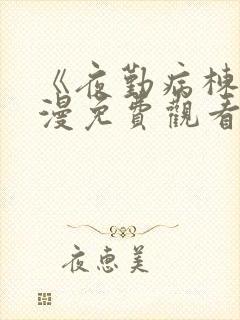 《夜勤病棟
漫免費觀看
夜惠美